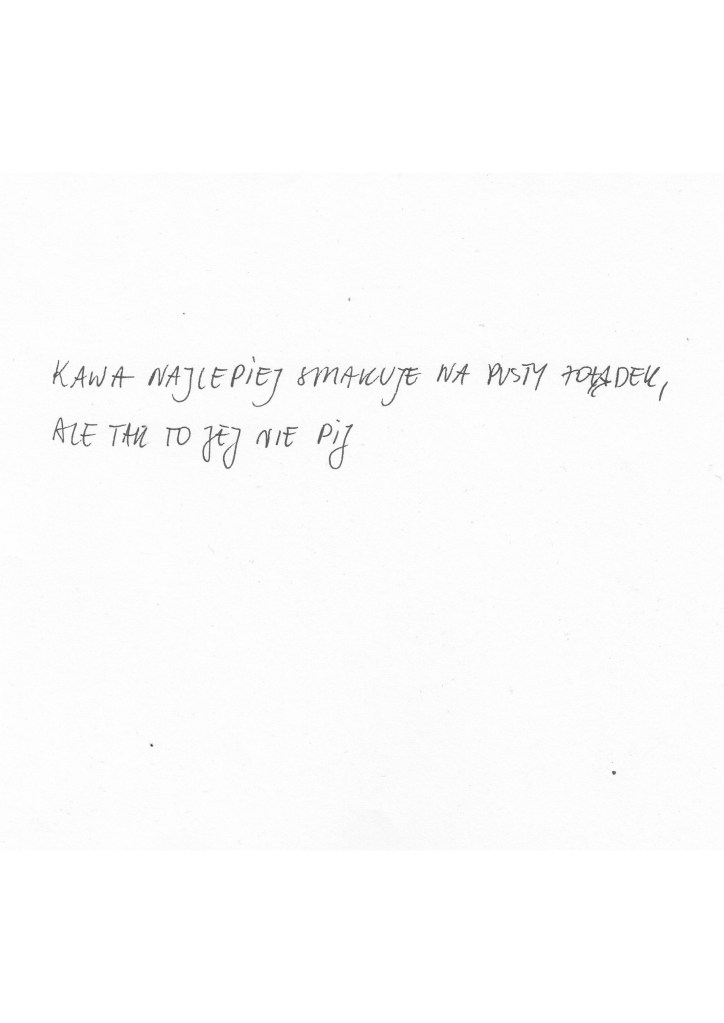 KAWA NAJLEPIEJ SMAKUJE NA PUSTY ŻOŁĄDEK,
ALE TAK TO JEJ NIE PIJ